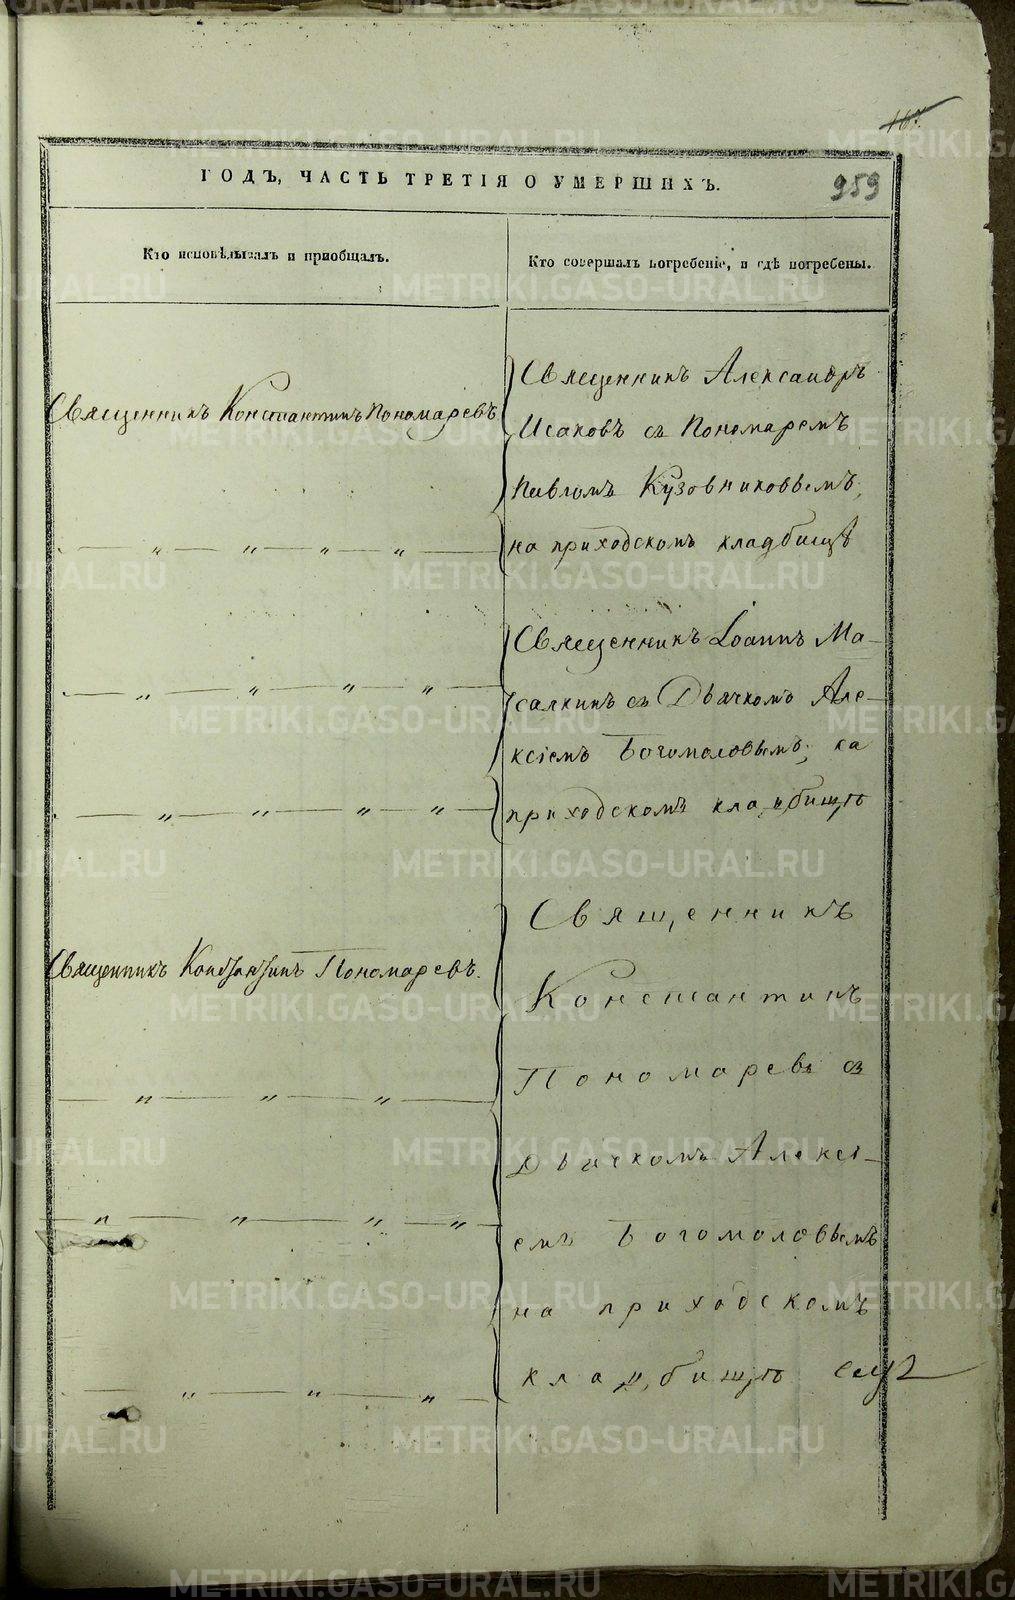 167.
ГОДЪ, ЧАСТЬ ТРЕТІЯ О УМЕРШИХЪ.
959
Кто исповѣдывалъ и пріобщалъ.
Кто совершалъ погребеніе, и гдѣ погребены.
Священникъ Константинъ Пономаревъ
Священникъ Александръ
Исаковъ съ Пономаремъ
Павломъ Кузовниковымъ,
на приходскомъ кладбищѣ
— „ — „ — „ — „ —
Священникъ Іоаннъ Ма-
салкинъ съ Дьячкомъ Але-
ксіемъ Богомоловымъ, на
приходскомъ кладбищѣ
— „ — „ — „ — „ —
— „ — „ — „ — „ —
Священникъ Константинъ Пономаревъ.
Священникъ
Константинъ
Пономаревъ съ
Дьячкомъ Алексі-
емъ Богомоловымъ
на приходскомъ
кладбищѣ
— „ — „ — „ —
— „ — „ — „ — „ —
— „ — „ — „ —
METRIKI.GASO-URAL.RU